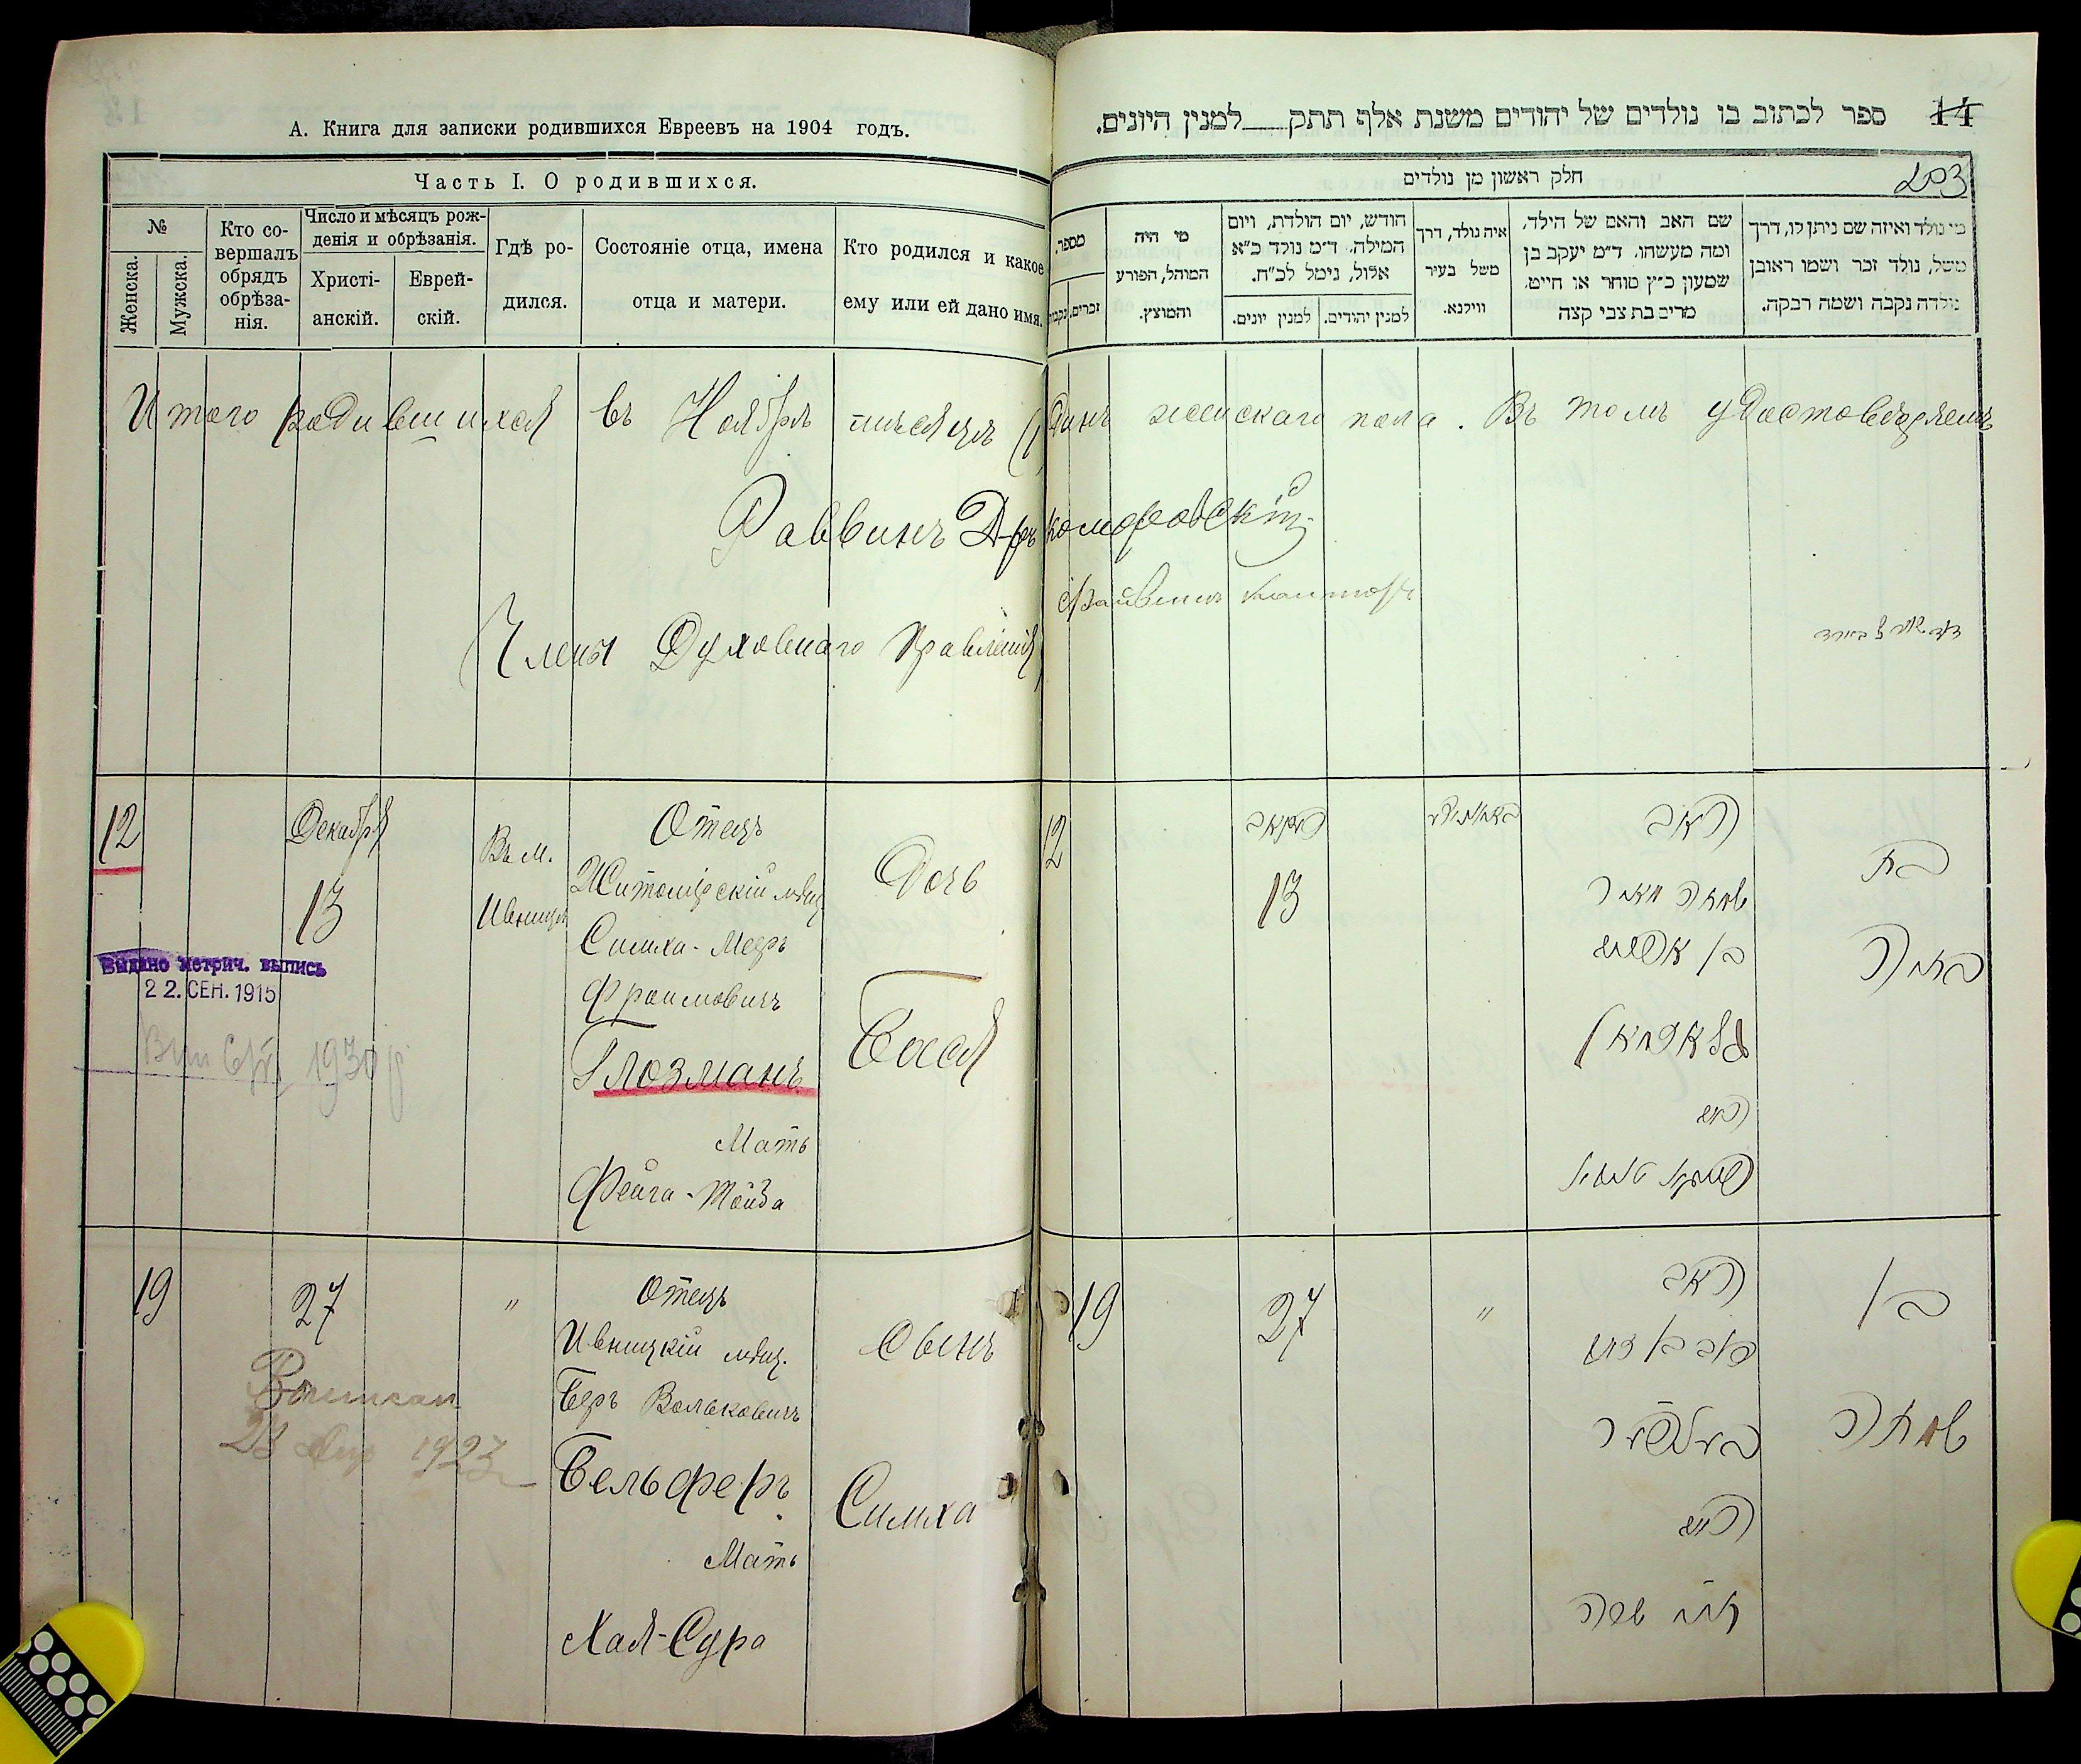 А. Книга для записки родившихся Евреевъ на 1904 годъ.
Часть I. О родившихся.
№
Женска.
Мужска.
Кто со-
вершалъ
обрядъ
обрѣза-
нія.
Число и мѣсяцъ рож-
денія и обрѣзанія.
Христі-
анскій.
Еврей-
скій.
Гдѣ ро-
дился.
Состояніе отца, имена
отца и матери.
Кто родился и какое
ему или ей дано имя.
14
ספר לכתוב בו נולדים של יהודים משנת אלף תתק למנין היונים.
חלק ראשון מן נולדים
מי נולד ואיזה שם ניתן לו, דרך
משל, נולד זכר ושמו ראובן
נולדה נקבה ושמה רבקה.
שם האב והאם של הילד,
ומה מעשהו, ד״מ יעקב בן
שמעון כ״ץ סוחר או חייט,
מרים בת צבי קצה
איה נולד, דרך
משל בעיר
ווילנא.
חודש, יום הולדת, ויום
המילה, ד״מ נולד כ״א
אלול, נימל לכ״ח.
למנין יהודים.
למנין יונים.
מי היה
המוהל, הפורע
והמוצץ.
מספר.
זכרים.
נקבות
Итого родившихся въ Ноябрѣ мѣсяцѣ Одинъ женскаго пола. Въ томъ удостовѣряемъ
Раввинъ Д-ръ Комаровскій
Члены Духовнаго Правленія
12
Декабря
13
Въ м.
Ивницѣ
Отецъ
Житомірскій мѣщ.
Симха-Меръ
Фроимовичъ
Глозманъ
Мать
Фейга-Тойба
Дочь
Бася
Выдано метрич. выпись
22. СЕН. 1915
1930
12
13
האב
שמחה מאיר
בן אפרים
גלאזמאן
האם
בת
באסיה
19
27
"
Отецъ
Ивницкій мѣщ.
Беръ Вольковичъ
Бельферъ
Мать
Хая-Сура
Сынъ
Симха
1923
19
27
"
האב
בעלפער
האם
חיה שרה
בן
שמחה